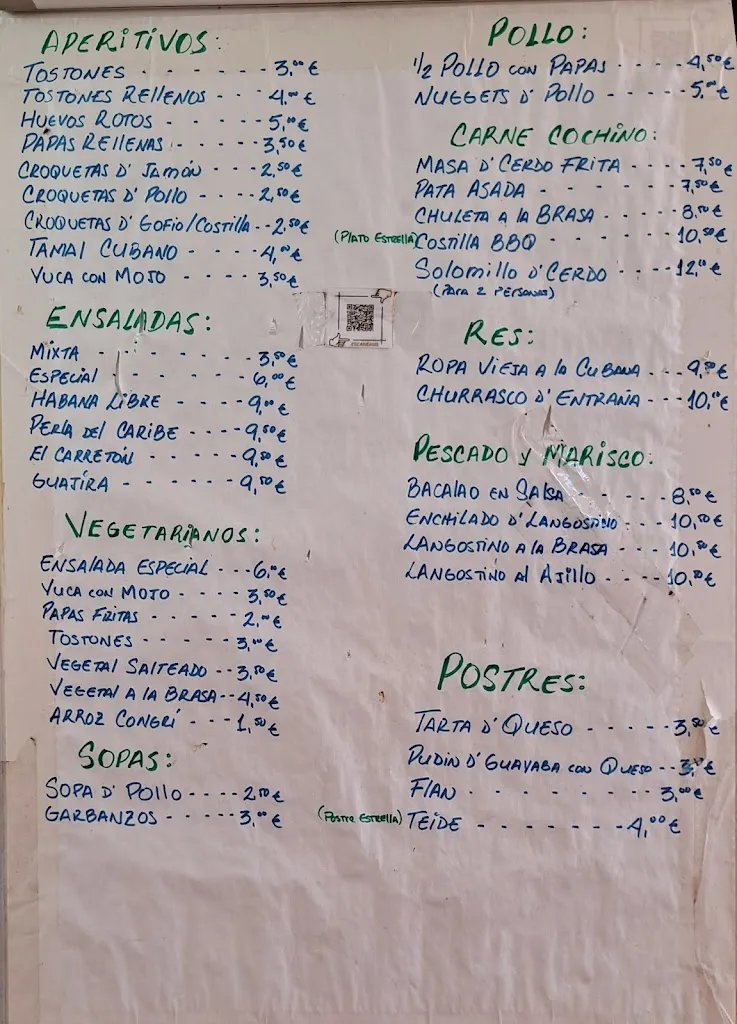 APERITIVOS:
TOSTONES - - - - - - - 3,00 €
TOSTONES RELLENOS - - - 4,00 €
HUEVOS ROTOS - - - - - 5,00 €
PAPAS RELLENAS - - - - 3,50 €
CROQUETAS D' JAMÓN - - - 2,50 €
CROQUETAS D' POLLO - - - - 2,50 €
CROQUETAS D' GOFIO/COSTILLA - - 2,50 €
TAMAL CUBANO - - - - 4,00 €
YUCA CON MOJO - - - - 3,50 €
ENSALADAS:
MIXTA - - - - - - - 3,50 €
ESPECIAL - - - - - - 6,00 €
HABANA LIBRE - - - - 9,00 €
PERLA DEL CARIBE - - - 9,50 €
EL CARRETÓN - - - - - 9,50 €
GUAJIRA - - - - - - 9,50 €
VEGETARIANOS:
ENSALADA ESPECIAL - - - 6,00 €
YUCA CON MOJO - - - - 3,50 €
PAPAS FRITAS - - - - - 2,00 €
TOSTONES - - - - - 3,00 €
VEGETAL SALTEADO - - 3,50 €
VEGETAL A LA BRASA - - 4,50 €
ARROZ CONGRÍ - - - 1,50 €
SOPAS:
SOPA D' POLLO - - - - 2,50 €
GARBANZOS - - - - - 3,00 €
POLLO:
1/2 POLLO CON PAPAS - - - - 4,50 €
NUGGETS D' POLLO - - - - 5,00 €
CARNE COCHINO:
MASA D' CERDO FRITA - - - - 7,50 €
PATA ASADA - - - - - 7,50 €
CHULETA A LA BRASA - - - - - 8,50 €
(PLATO ESTRELLA) COSTILLA BBQ - - - - - - 10,50 €
SOLOMILLO D' CERDO - - - - 12,00 €
(PARA 2 PERSONAS)
RES:
ROPA VIEJA A LA CUBANA - - - 9,50 €
CHURRASCO D' ENTRAÑA - - - - 10,00 €
PESCADO Y MARISCO:
BACALAO EN SALSA - - - - - 8,50 €
ENCHILADO D' LANGOSTINO - - - 10,50 €
LANGOSTINO A LA BRASA - - - 10,50 €
LANGOSTINO AL AJILLO - - - - 10,50 €
POSTRES:
TARTA D' QUESO - - - - - - 3,50 €
PUDIN D' GUAYABA CON QUESO - -
FLAN - - - - - - - 3,00 €
(POSTRE ESTRELLA) TEIDE - - - - - - - 4,00 €